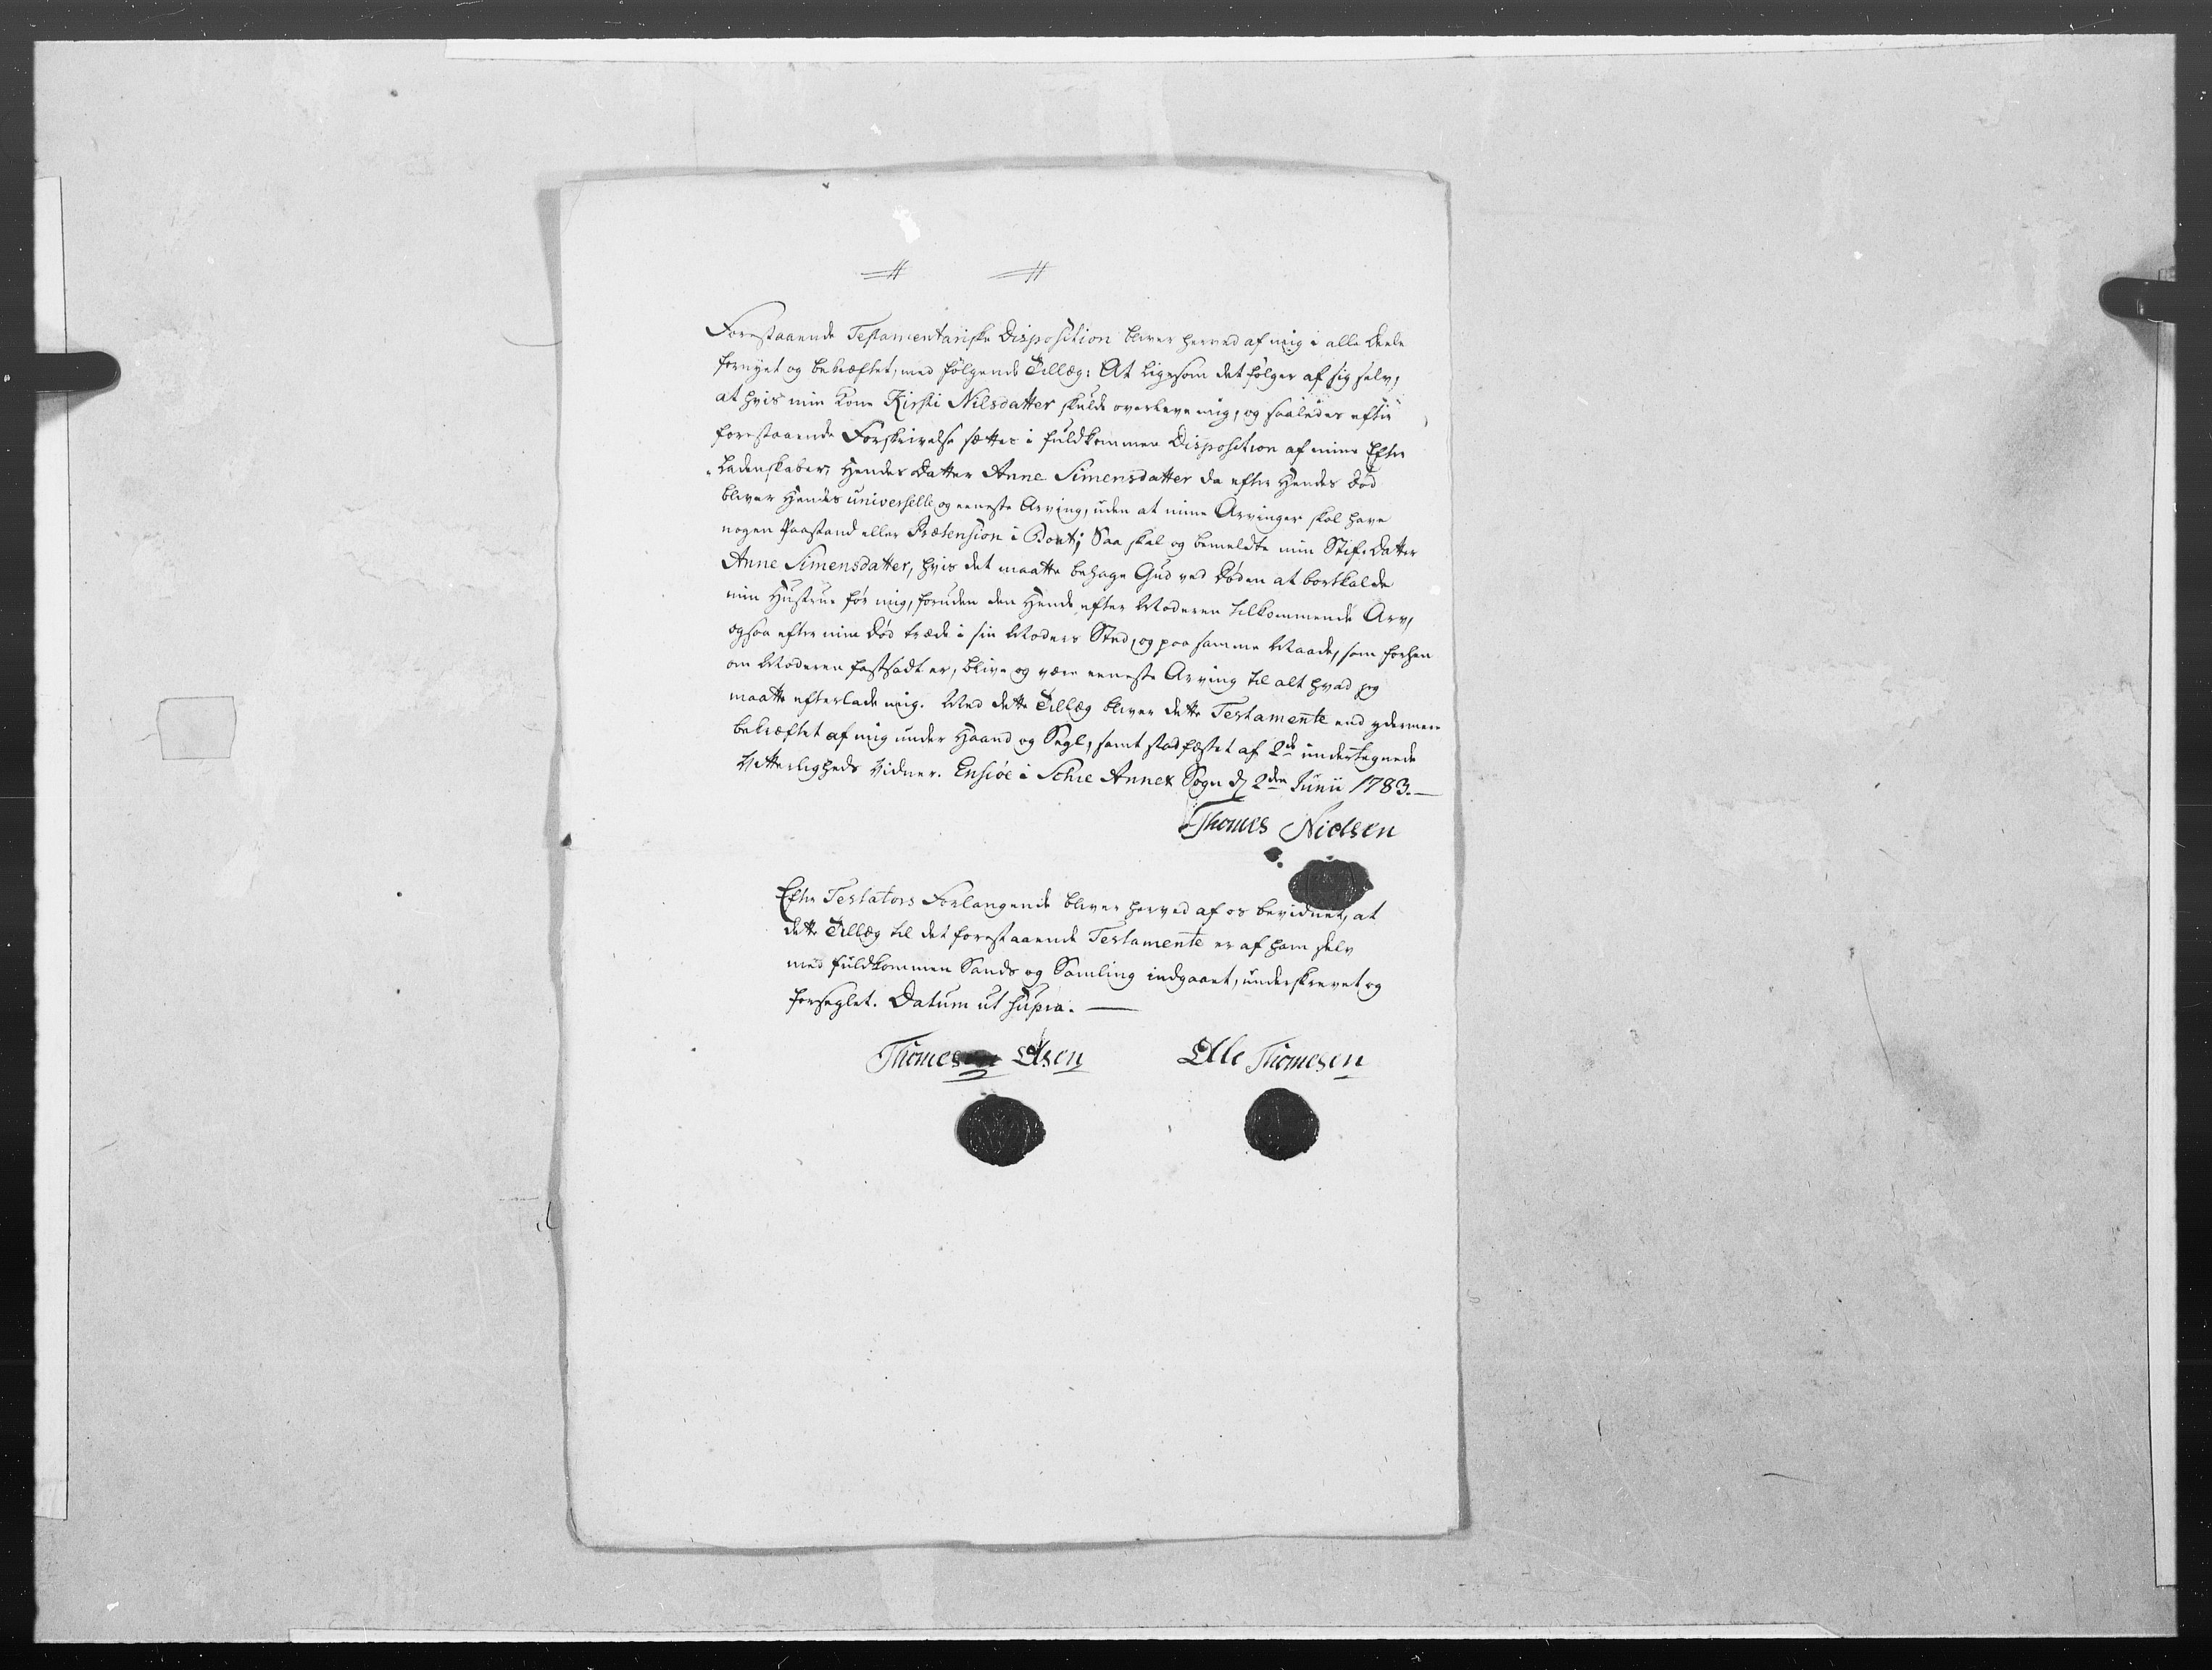 Forestaaende Testamentariske Disposition bliver herved af mig i alle Deele
fornyet og bekræftet, med følgende Tillæg: At ligesom det følger af sig selv,
at hvis min Kone Kirsti Nilsdatter skulde overleve mig, og saaledes efter
forestaaende Forskrivelse sættes i fuldkommen Disposition af mine Efter
ladenskaber, Hendes Datter Anne Simensdatter da efter Hendes Død
bliver Hendes universelle og eeneste Arving, uden at mine Arvinger skal have
nogen Paastand eller Prætension i Boet; Saa skal og bemeldte min Stif-Datter
Anne Simensdatter, hvis det maatte behage Gud ved Døden at bortkalde
min Hustrue før mig, foruden den Hende efter Moderen tilkommende Arv,
ogsaa efter min Død træde i sin Moders Sted, og paa samme Maade, som forhen
om Moderen fastsadt er, blive og være eeneste Arving til alt hvad jeg
maatte efterlade mig. Med dette Tillæg bliver dette Testamente end ydermere
bekræftet af mig under Haand og Segl, samt stadfæstet af 2de undertegnede
Vitterligheds Vidner. Ensiöe i Schie Annex Sogn d 2den Junii 1783.—
Thomes Nielsen
Efter Testators Forlangende bliver herved af os bevidnet, at
dette Tillæg til det forestaaende Testamente er af ham selv
med fuldkommen Sands og Samling indgaaet, underskrevet og
forseglet. Datum ut supra. —
Thomes Olsen Olle Thomesen